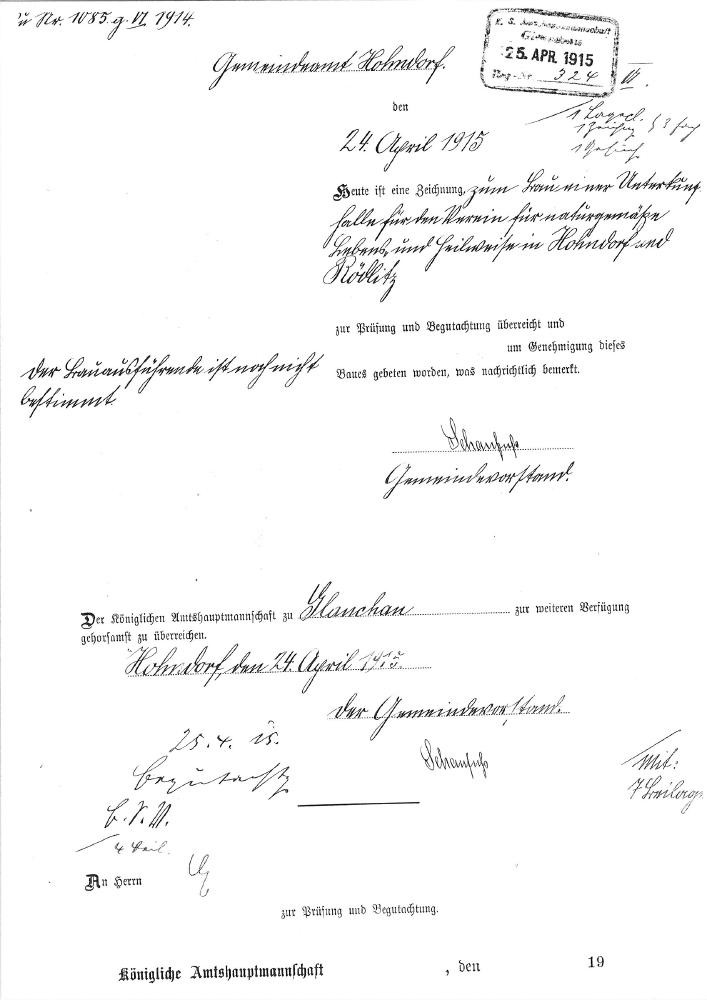 u Nr. 1085. g. VI 1914.
Gemeindeamt Hohndorf.
K. S. Amtshauptmannschaft
Glauchau
25. APR. 1915
Reg.-Nr. 324
VI.
den
24. April 1915
1 Lagepl.
1 Zeichng } 3 fach
1 Gesuch
Heute ist eine Zeichnung, zum Bau einer Unterkunfts
halle für den Verein für naturgemäße
Lebens- und Heilweise in Hohndorf und
Rödlitz
zur Prüfung und Begutachtung überreicht und
um Genehmigung dieses
Baues gebeten worden, was nachrichtlich bemerkt.
Der Bauausführende ist noch nicht
bestimmt.
Schaufuß
Gemeindevorstand.
Der Königlichen Amtshauptmannschaft zu Glauchau zur weiteren Verfügung
gehorsamst zu überreichen.
Hohndorf, den 24. April 1915.
Der Gemeindevorstand.
Schaufuß
Mit:
7 Beilagen
25. 4. 15.
Begutacht
4 Beil.
An Herrn
zur Prüfung und Begutachtung.
Königliche Amtshauptmannschaft , den 19